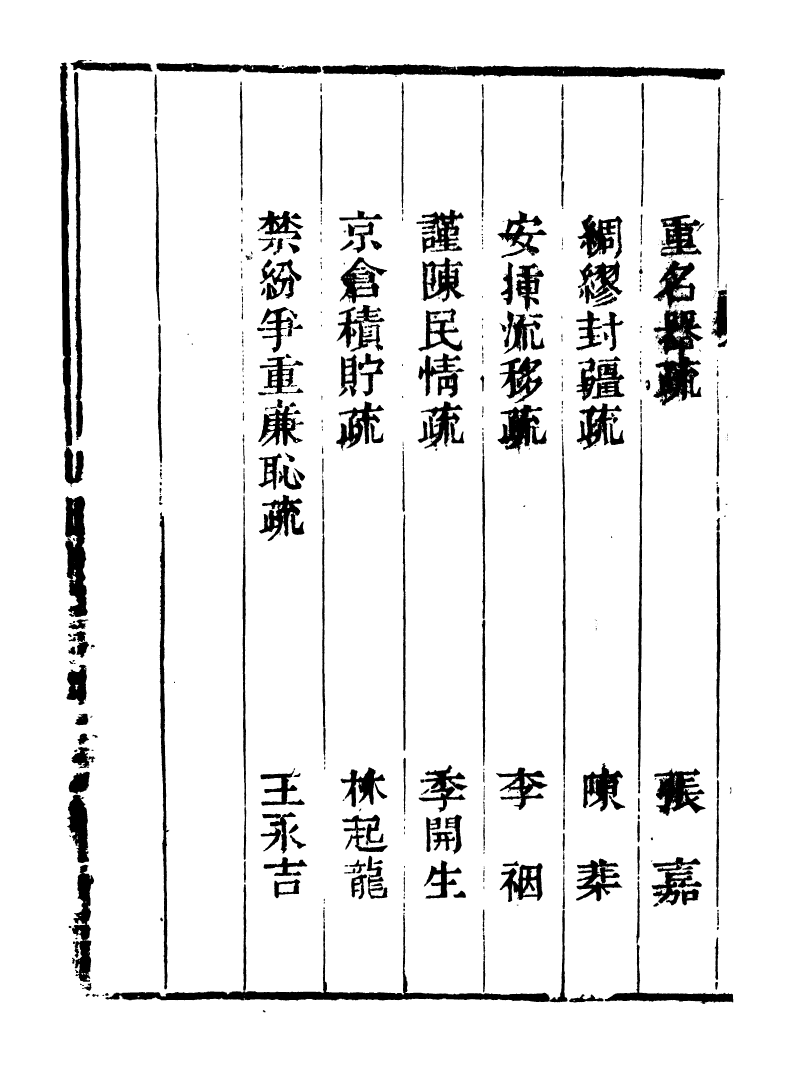 重名器疏　張嘉
綢繆封疆疏　陳棐
安揷流移疏　李裀
謹陳民情疏　季開生
京倉積貯疏　林起龍
禁紛爭重廉恥疏　王永吉